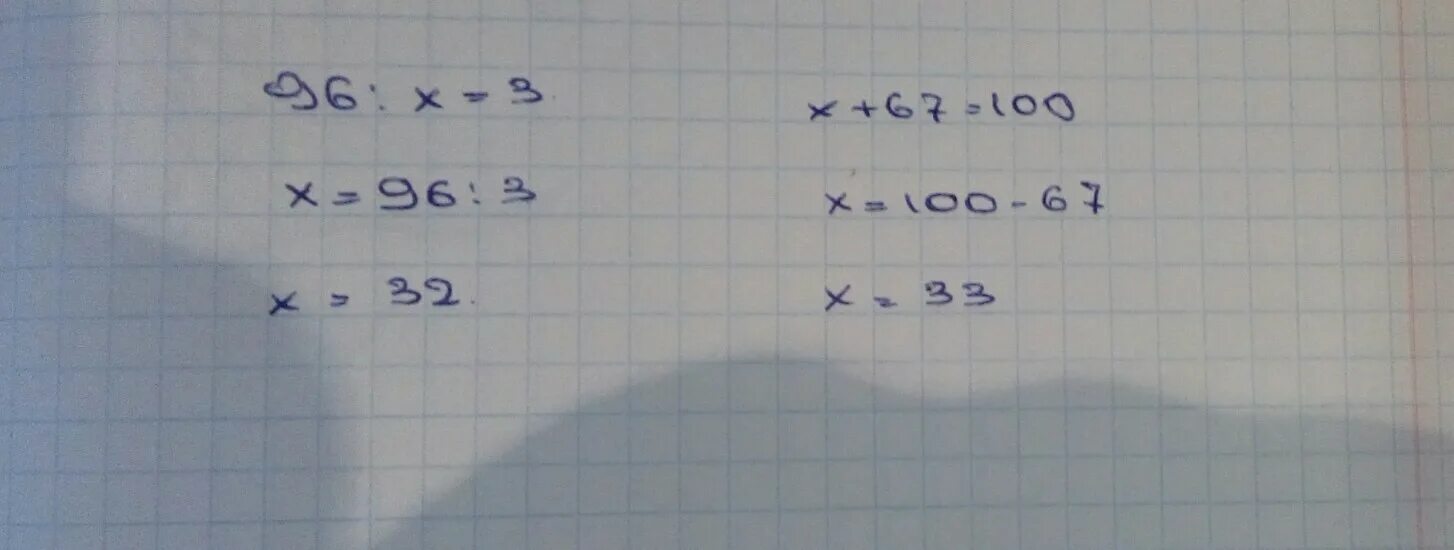 96 : x = 3
x = 96 : 3
x = 32.
x + 67 = 100
x = 100 - 67
x = 33